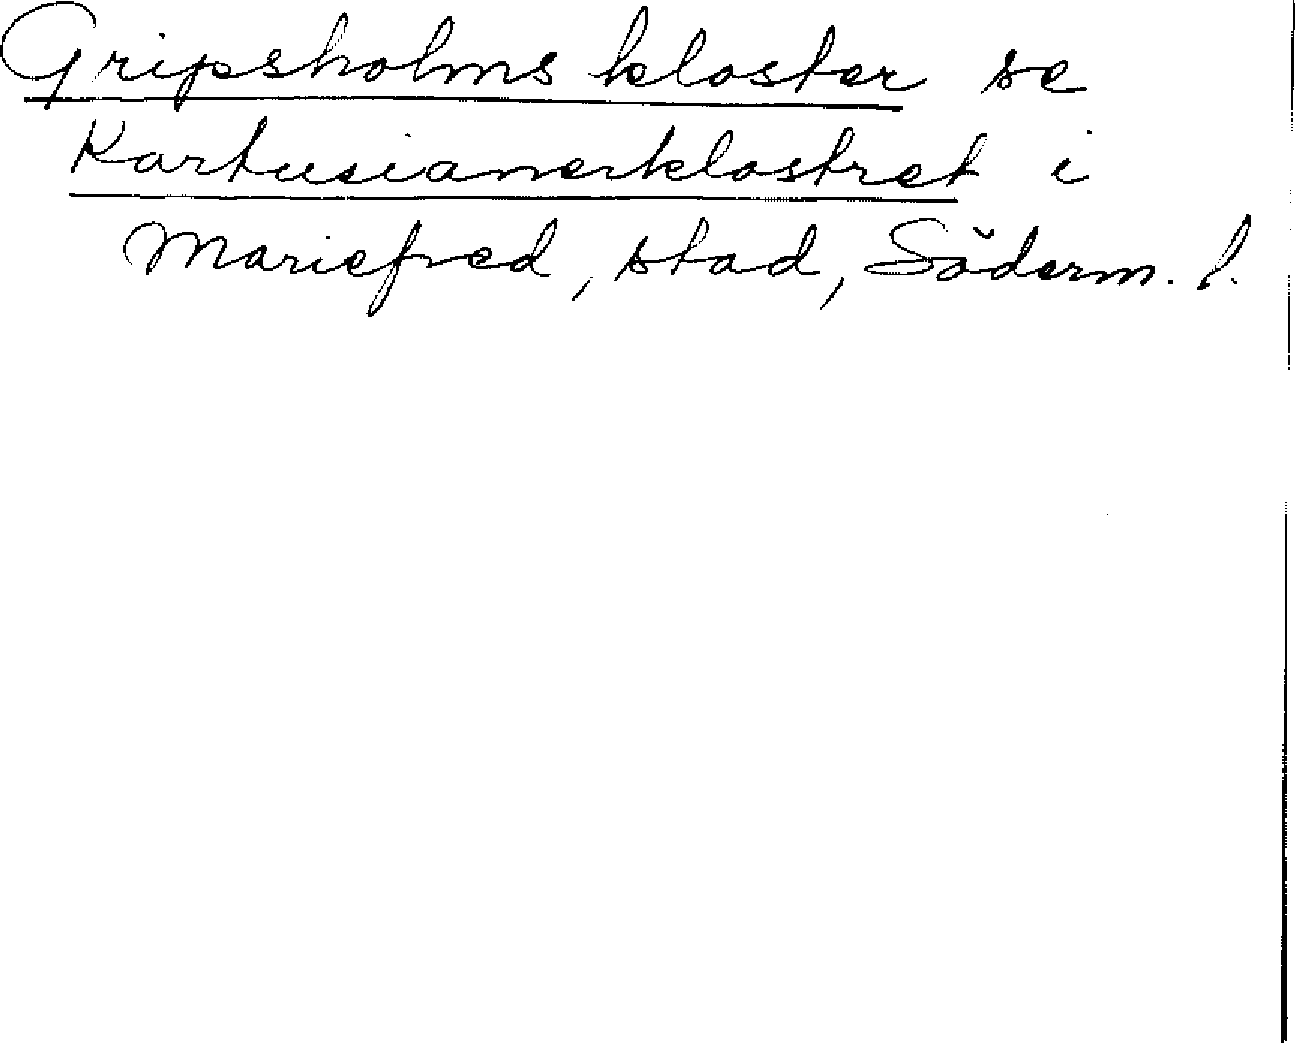 Gripsholms kloster se
Kartusianerklostret i
Mariefred, stad, Söderm. l.